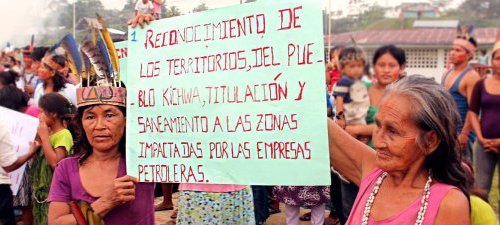 1 RECONOCIMIENTO DE
LOS TERRITORIOS, DEL PUE-
BLO KICHWA, TITULACIÓN Y
SANEAMIENTO A LAS ZONAS
IMPACTADAS POR LAS EMPRESAS
PETROLERAS.